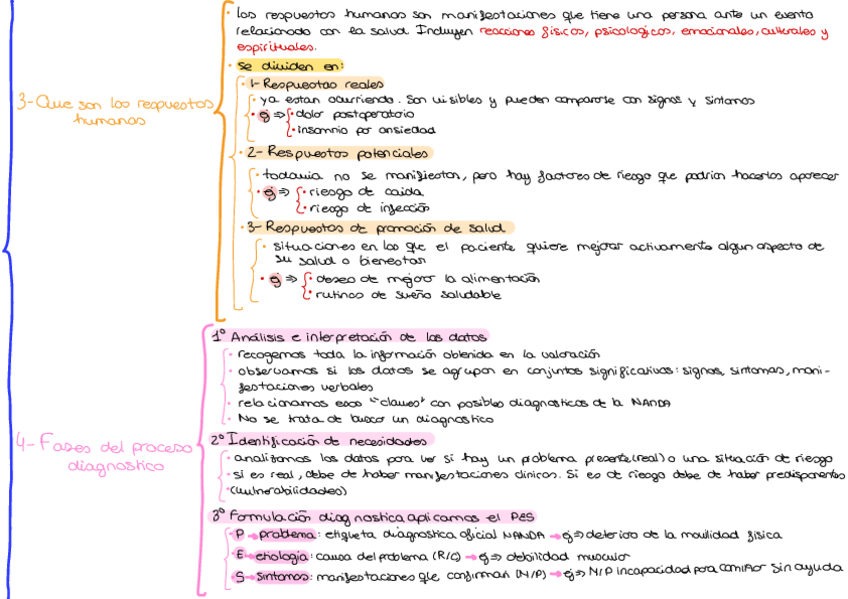 · Las respuestas humanas son manifestaciones que tiene una persona ante un evento
relacionado con la salud. Incluyen reacciones físicas, psicologicas, emocionales, culturales y
espirituales.
· Se dividen en:
3-Que son las respuestas
humanas
· 1-Respuestas reales
· ya estan ocurriendo. Son visibles y pueden compararse con signos y sintomas
· ej ⇒ · dolor postoperatorio
· insomnio por ansiedad
· 2-Respuestas potenciales
· todavia no se manifiestan, pero hay factores de riesgo que podrian hacerlas aparecer
· ej ⇒ · riesgo de caida
· riesgo de infección
· 3-Respuestas de promoción de salud
· situaciones en las que el paciente quiere mejorar activamente algun aspecto de
su salud o bienestar
· ej ⇒ · deseo de mejorar la alimentación
· rutinas de sueño saludable
4-Fases del proceso
diagnostico
1º Análisis e interpretación de los datos
· recogemos toda la información obtenida en la valoración
· observamos si los datos se agrupan en conjuntos significativos: signos, sintomas, mani-
festaciones verbales
· relacionamos esas "claves" con posibles diagnosticos de la NANDA
· No se trata de buscar un diagnostico
2º Identificación de necesidades
· analizamos los datos para ver si hay un problema presente (real) o una situación de riesgo
· si es real, debe de haber manifestaciones clinicas. Si es de riesgo debe de haber predisponentes
(vulnerabilidades)
3º Formulación diagnostica aplicamos el PES
P → problema: etiqueta diagnostica oficial NANDA → ej ⇒ deterioro de la movilidad fisica
E → etiologia: causa del problema (R/C) → ej ⇒ debilidad muscular
S → sintomas: manifestaciones que confirman (M/P) → ej ⇒ M/P incapacidad para caminar sin ayuda